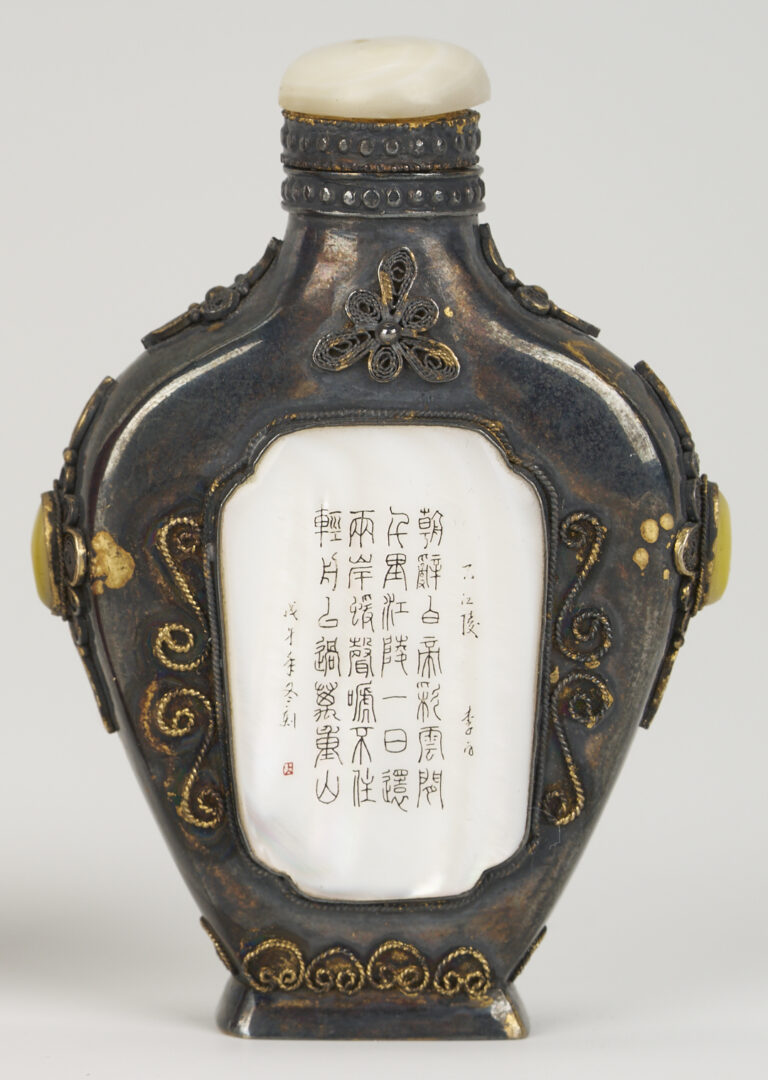 下江陵 李白
朝辭白帝彩雲間
千里江陵一日還
兩岸猿聲啼不住
輕舟已過萬重山
戊午年冬刻